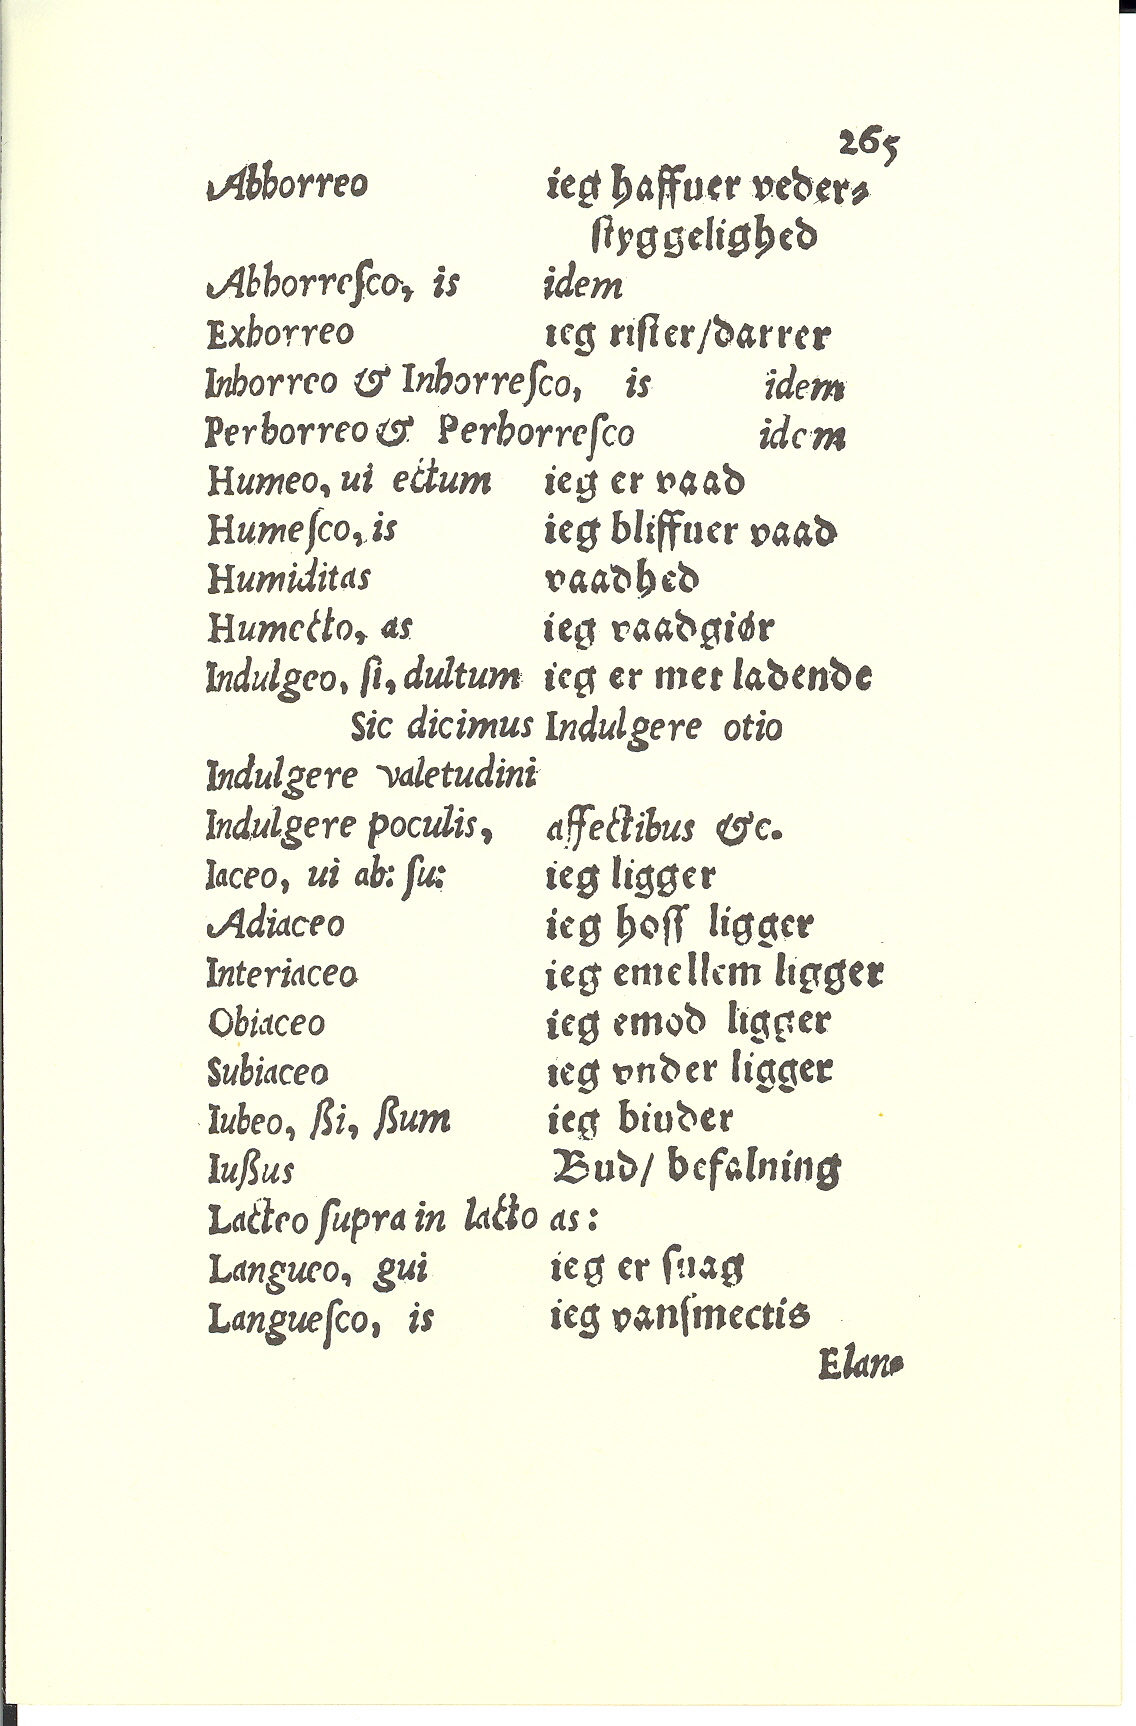 265
Abhorreo ieg haffuer veder-
ſtyggelighed
Abhorreſco, is idem
Exhorreo ieg riſter/darrer
Inhorreo & Inhorreſco, is idem
Perhorreo & Perhorreſco idem
Humeo, ui ectum ieg er vaad
Humeſco, is ieg bliffuer vaad
Humiditas vaadhed
Humecto, as ieg vaadgiør
Indulgeo, ſi, dultum ieg er met ladende
Sic dicimus Indulgere otio
Indulgere valetudini
Indulgere poculis, affectibus &c.
Iaceo, ui ab: ſu: ieg ligger
Adiaceo ieg hoſſ ligger
Interiaceo ieg emellem ligger
Obiaceo ieg emod ligger
Subiaceo ieg vnder ligger
Iubeo, ßi, ßum ieg biuder
Iußus Bud/ befalning
Lacteo ſupra in lacto as:
Langueo, gui ieg er ſuag
Langueſco, is ieg vanſmectis
Elan-